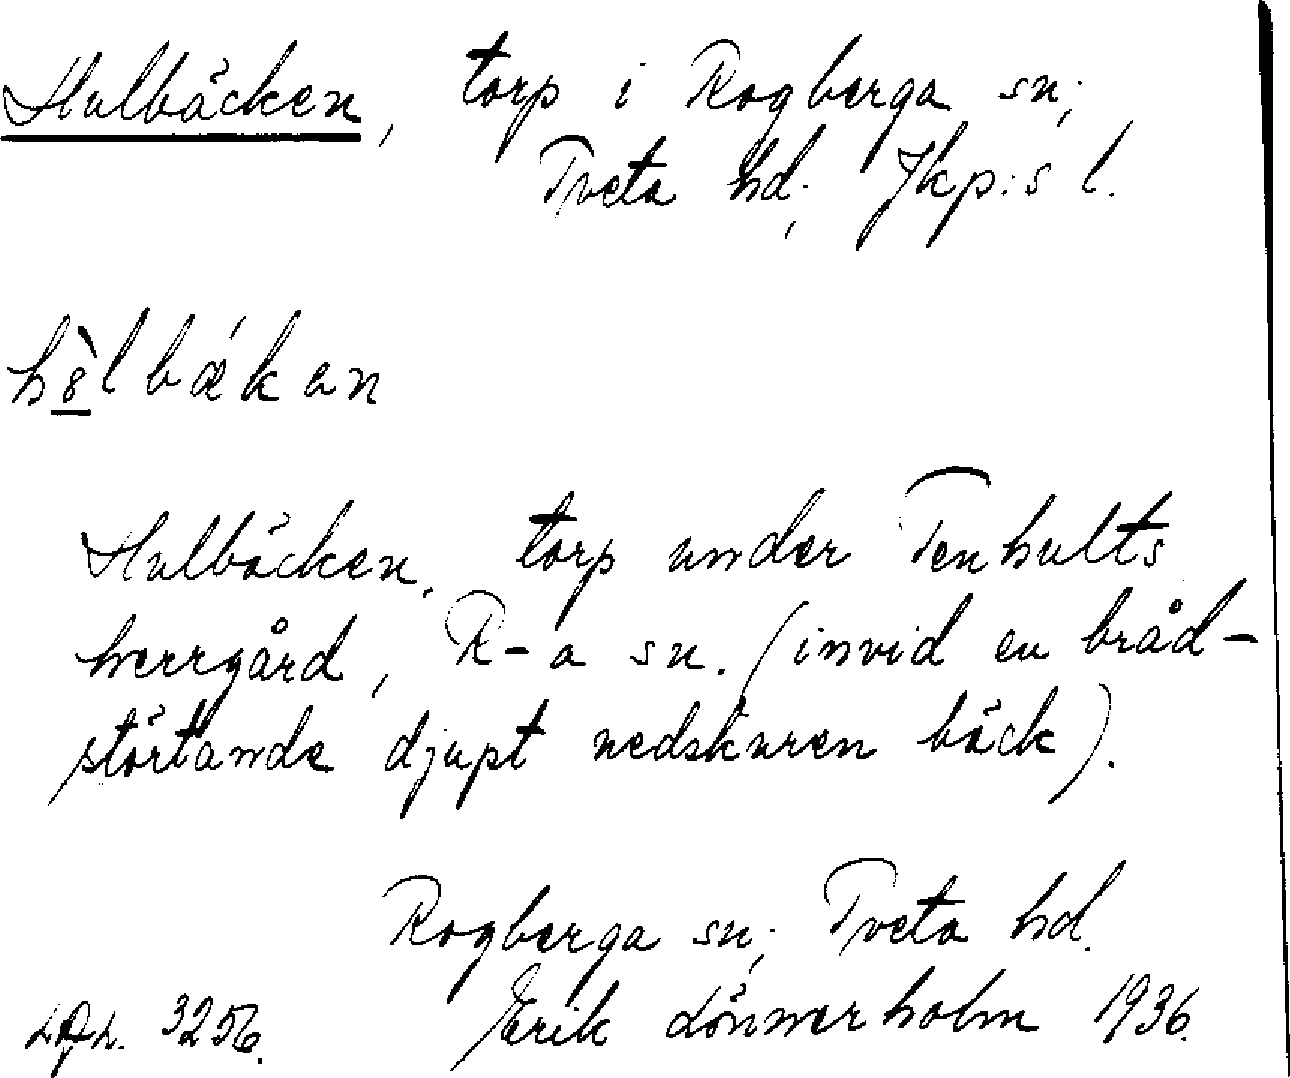 Hulbäcken, torp i Rogberga sn;
Tveta hd, Jkp:s l.
Hulbäcken, torp under Tenhults
herrgård, R-a sn. (invid en bråd-
störtande djupt nedskuren bäck).
Rogberga sn; Tveta hd.
3256. Erik Lönnerholm 1936.